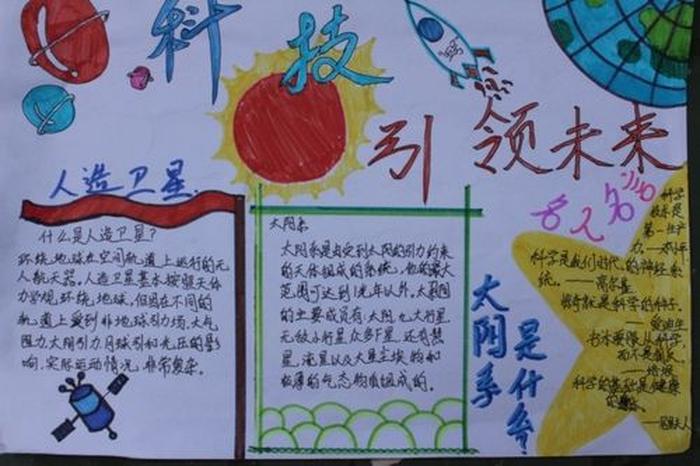 科技
引领未来
人造卫星
什么是人造卫星?
环绕地球在空间轨道上运行的无
人航天器。人造卫星基本按照天体
力学规环绕地球,但因在不同的
轨道上受到非地球引力场,大气
阻力,太阳引力,月球引和光压的影
响,实际运动情况非常复杂。
太阳系
太阳系是由受到太阳的引力约束
的天体组成的系统,
范围可达到1光年以外,太阳系
的主要成员有:太阳,九大行星
无数小行星众多卫星,还有彗
星,流星以及大量尘埃物和
稀薄的气态物质组成的。
太阳系
是什么
名人名言
科学
技术是
第一生产
力—邓小平
科学是我们时代的神经系
统。——高尔基
好奇就是科学的种子.
——爱迪生
书本要服从科学,
而不是
——培根
科学的基础是健康
的
——居里夫人